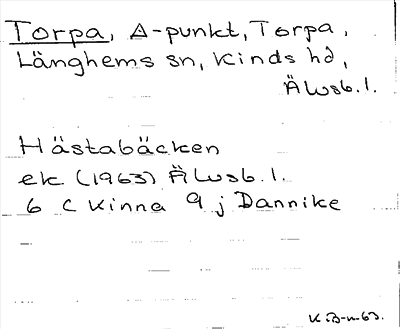 Torpa, Δ-punkt, Torpa,
Länghems sn, Kinds hd,
Älvsb. l.
Hästabäcken
ek (1963) Älvsb. l.
6 C Kinna 9 j Dannike
K.B-n-63.